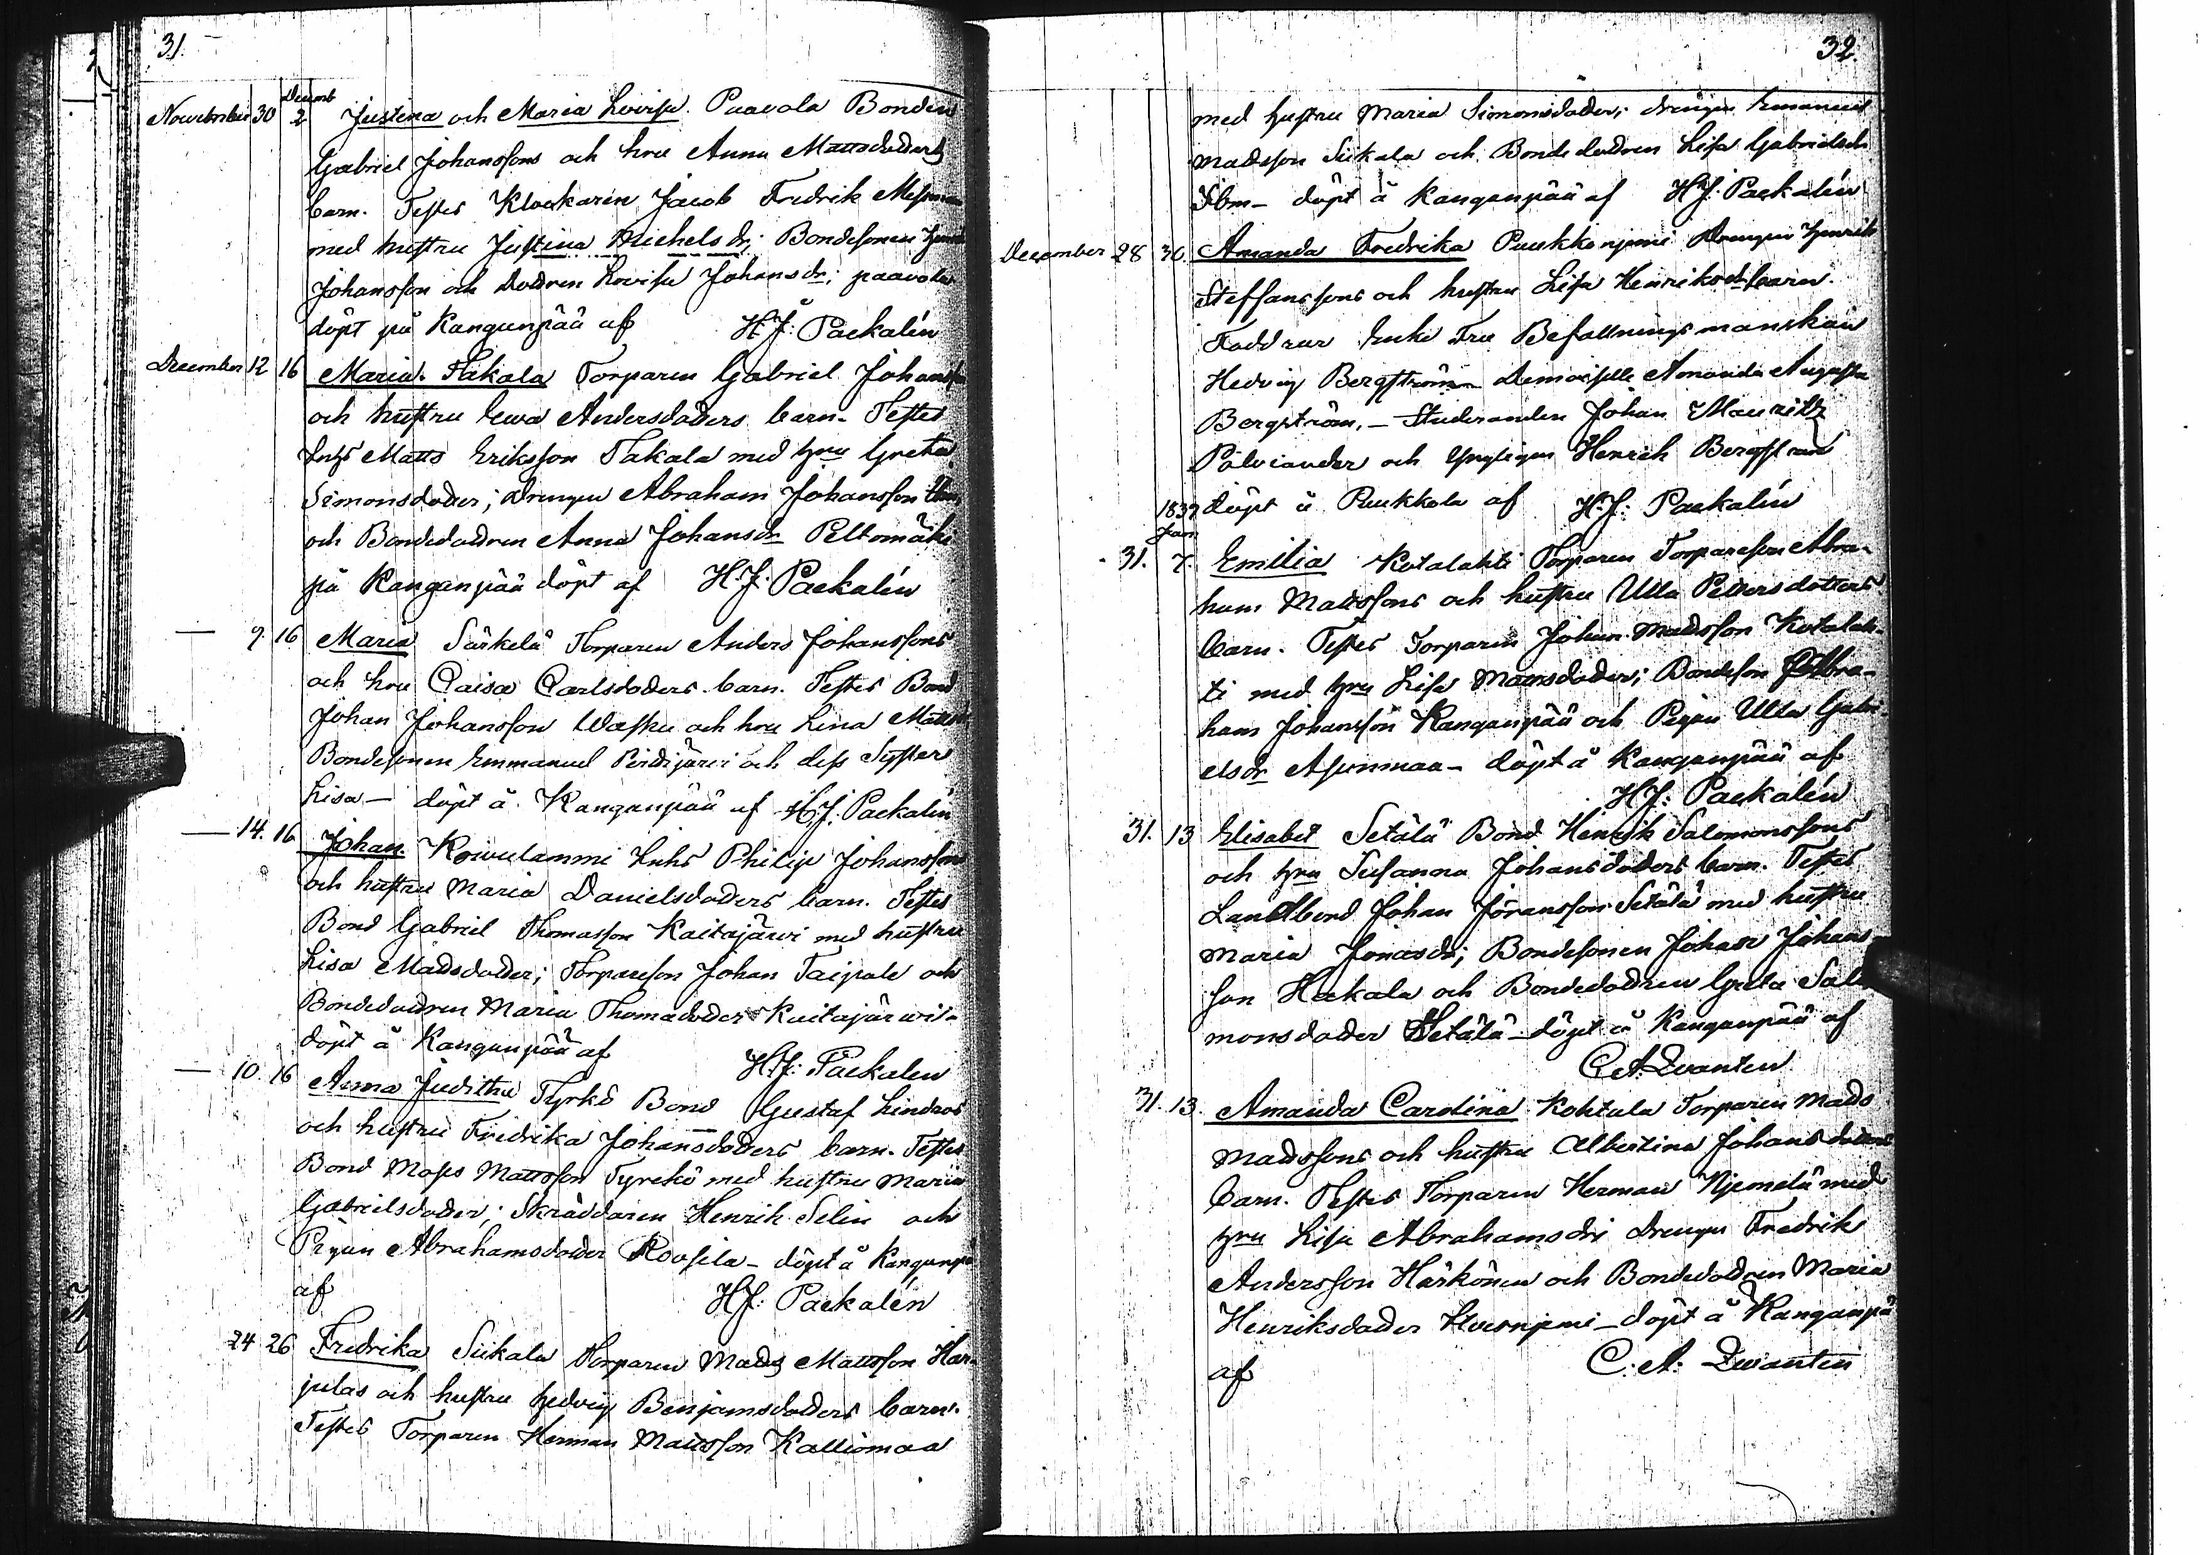 31.
November 30 Decemb 2 Justina och Maria Lovisa. Paavola Bonden
Gabriel Johanssons och hru Anna Mattsdotters
barn. Testes Klockaren Jacob Fredrik
med hustru Justina Michelsdr; Bondesonen
Johansson och dottren Lovisa Johansdr; paavola
döpt på Kanganpää af H.J: Packalén
December 12 16 Maria. Takala Torparen Gabriel Johans
och hustru Ewa Andersdotters barn. Testes
Inhs Matts Eriksson Takala med hru Greta
Simonsdotter; Drengen Abraham Johansson
och Bondedottren Anna Johansdr Peltomäki
på Kanganpää döpt af H.J. Packalén
— 9. 16 Maria Särkelä Torparen Anders Johanssons
och hru Caisa Carlsdotters barn. Testes Bond
Johan Johansson Wasku och hru Lina Matts
Bondesonen Emmanuel och dess Syster
Lisa — döpt å Kanganpää af H.J. Packalén
— 14. 16 Johan. Koivulammi Inhs Philip Johanssons
och hustru Maria Danielsdotters barn. Testes
Bond Gabriel Thomasson Kaitajärwi med hustru
Lisa Madsdotter; Torpareson Johan Taipale och
Bondedottren Maria Thomadotter Kaitajärwi-
döpt å Kanganpää af H.J: Packalen
— 10. 16 Anna Juditha Tyrkö Bond Gustaf Lindroos
och hustru Fredrika Johansdotters barn. Testes
Bond Moses Mattsson Tyrckö med hustru Maria
Gabrielsdotter; Skräddaren Henrik Selin och
Pigan Abrahamsdotter Roosila — döpt å Kanganpä
af H.J: Packalén
24 26 Fredrika Siikala Torparen Mads Mattsson Har-
julas och hustru Hedvig Benjamsdotters barn.
Testes Torparen Herman Mattsson Kalliomaa
32.
med hustru Maria Simonsdotter; drengen Emanuel
Madsson Siikala och Bondedottren Lisa Gabrielsdr
Ibm — döpt å Kanganpää af H.J. Packalén
December 28 30. Amanda Fredrika Puukkonjemi Drengen Henrik
Steffanssons och hustru Lisa Henriksdr barn.
Faddrar Enke Fru Befallningsmanskan
Hedvig Bergström Demoiselle Amanda Augusta
Bergström, — Studeranden Johan Mauritz
Pålviander och Ynglingen Henrik Bergström
döpt å Puukkola af H.J: Packalén
1837
Jan
31. 7. Emilia Kotalahti Torparen Torpareson Abra-
ham Mattssons och hustru Ulla Pettersdotters
barn. Testes Torparen Johan Madsson Kotalah-
ti med hru Lisa Mattsdotter; Bondeson Abra-
ham Johansson Kanganpää och Pigan Ulla Gabri-
elsdr Asunmaa — döpt å Kanganpää af
H.J: Packalén
31. 13 Elisabet Setälä Bond Henrik Salomonssons
och hru Susanna Johansdotters barn. Testes
Landtbond Johan Jöransson Setälä med hustru
Maria Jonasdr; Bondesonen Johan Johans-
son Hakala och Bondedottren Greta Salo
monsdotter Setälä — döpt å Kanganpää af
C.A. Zwanten
31. 13. Amanda Carolina Kohtala Torparen Mads
Madssons och hustru Albertina Johansdotters
barn. Testes Torparen Herman Njemelä med
hru Lisa Abrahamsdr; drengen Fredrik
Andersson Härkönen och Bondedottren Maria
Henriksdotter — döpt å Kanganpä
af C: A: Zwanten